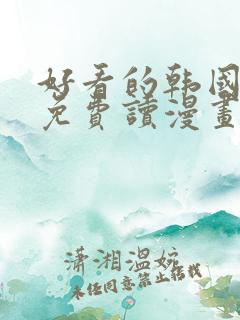 好看的韩国
免費讀漫畫
瀟湘溫婉
未经同意禁止转载